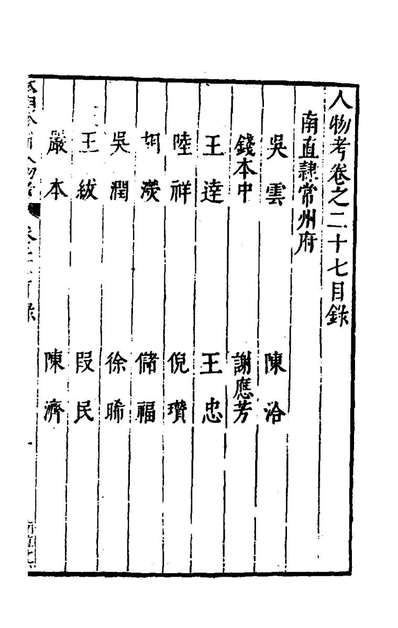 人物考卷之二十七目錄
南直隸常州府
吳雲 陳洽
錢本中 謝應芳
王達 王忠
陸祥 倪瓚
胡濙 儲福
吳潤 徐晞
王紱 段民
嚴本 陳濟